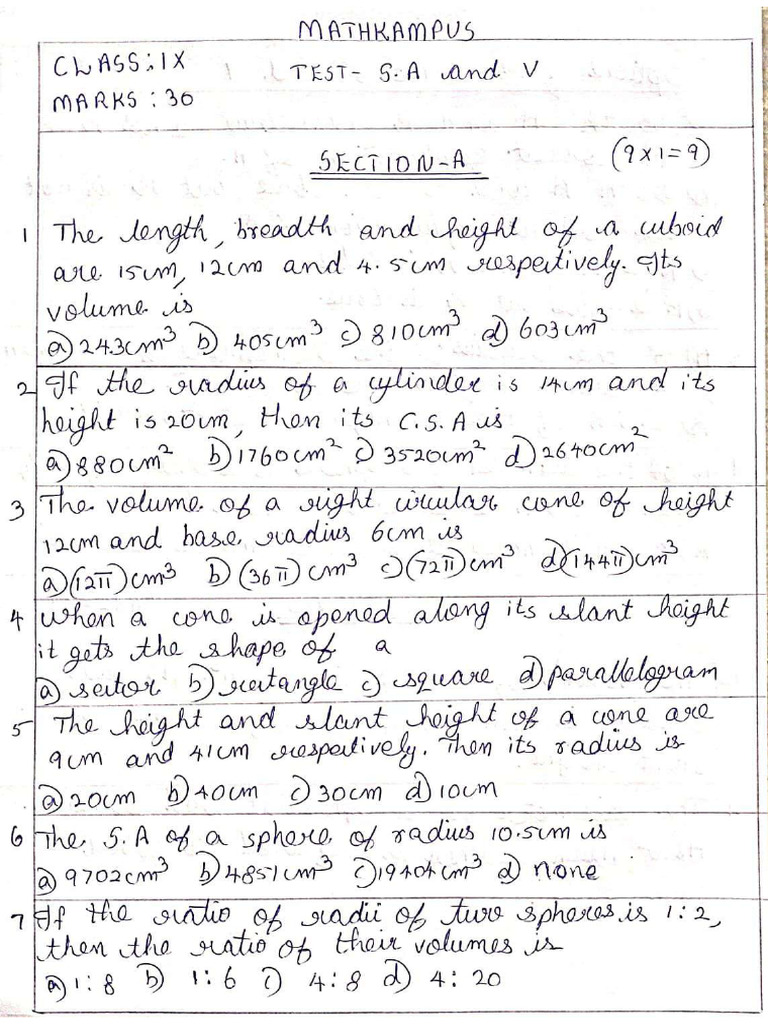 MATHKAMPUS
CLASS: IX
TEST- S.A and V
MARKS: 30
SECTION-A (9x1=9)
1 The length, breadth and height of a cuboid
are 15cm, 12cm and 4.5cm respectively. Its
volume is
a) 243cm³ b) 405cm³ c) 810cm³ d) 603cm³
2 If the radius of a cylinder is 14cm and its
height is 20cm, then its C.S.A is
a) 880cm² b) 1760cm² c) 3520cm² d) 2640cm²
3 The volume of a right circular cone of height
12cm and base radius 6cm is
a) (12π)cm³ b) (36π)cm³ c) (72π)cm³ d) (144π)cm³
4 When a cone is opened along its slant height
it gets the shape of a
a) sector b) rectangle c) square d) parallelogram
5 The height and slant height of a cone are
9cm and 41cm respectively. Then its radius is
a) 20cm b) 40cm c) 30cm d) 10cm
6 The S.A of a sphere of radius 10.5cm is
a) 9702cm³ b) 4851cm³ c) 19404cm³ d) none
7 If the ratio of radii of two spheres is 1:2,
then the ratio of their volumes is
a) 1:8 b) 1:6 c) 4:8 d) 4:20